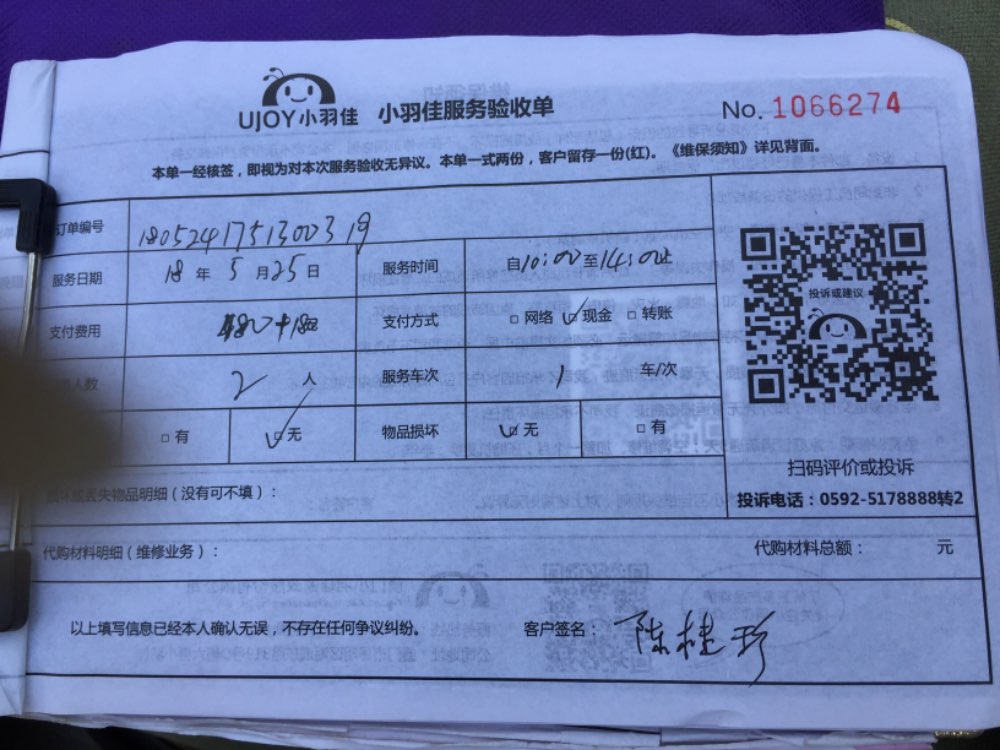 UJOY小羽佳 小羽佳服务验收单 No. 1066274
本单一经核签，即视为对本次服务验收无异议。本单一式两份，客户留存一份(红)。《维保须知》详见背面。
订单编号 18052417513003 19
服务日期 18 年 5 月 25 日 服务时间 自10:00至14:00止
支付费用 支付方式 □ 网络 ☑ 现金 □ 转账
人数 2 人 服务车次 1 车/次
□ 有 ☑ 无 物品损坏 ☑ 无 □ 有
投诉或建议
扫码评价或投诉
投诉电话：0592-5178888转2
丢失物品明细（没有可不填）：
代购材料明细（维修业务）： 代购材料总额： 元
以上填写信息已经本人确认无误，不存在任何争议纠纷。 客户签名： 陈桂珍